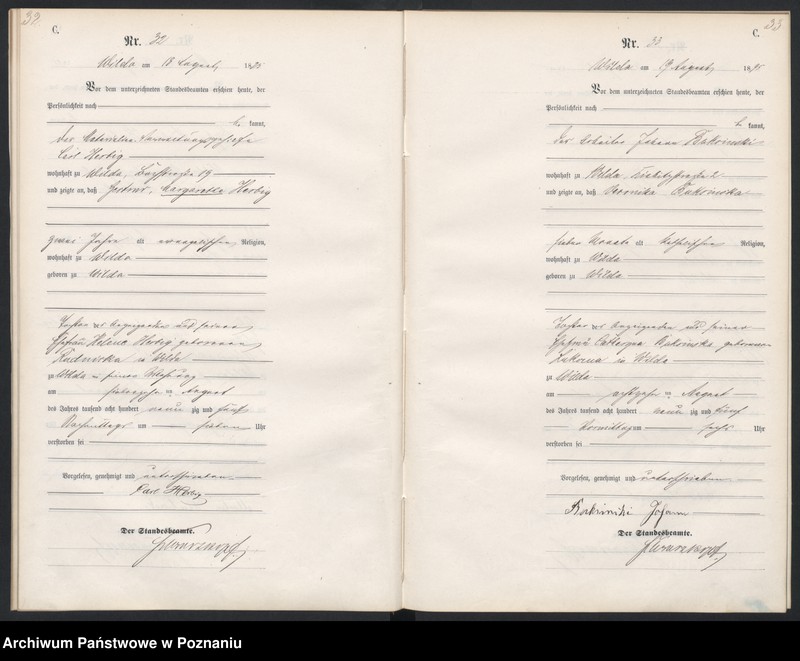 32
C.
Nr. 32
Wilda am 18 August 1895
Vor dem unterzeichneten Standesbeamten erschien heute, der
Persönlichkeit nach
kannt,
der
Carl Herbig
wohnhaft zu Wilda, 19
und zeigte an, daß Margaretha Herbig
zwei Jahre alt evangelischer Religion,
wohnhaft zu Wilda
geboren zu Wilda
Tochter des Anzeigenden und seiner
Ehefrau Helene Herbig geborenen
in Wilda
zu Wilda in seiner Wohnung
am siebzehn ten August
des Jahres tausend acht hundert neun zig und fünf
Nachmittags um sieben Uhr
verstorben sei
Vorgelesen, genehmigt und unterschrieben
Carl Herbig
Der Standesbeamte.
33
C.
Nr. 33
Wilda am 19 August 1895
Vor dem unterzeichneten Standesbeamten erschien heute, der
Persönlichkeit nach
kannt,
der Arbeiter Johann
wohnhaft zu Wilda,
und zeigte an, daß Veronika
sieben Monate alt katholischer Religion,
wohnhaft zu Wilda
geboren zu Wilda
Tochter des Anzeigenden und seiner
Ehefrau geborenen
in Wilda
zu Wilda
am achtzehn ten August
des Jahres tausend acht hundert neun zig und fünf
Vormittags um sechs Uhr
verstorben sei
Vorgelesen, genehmigt und unterschrieben
Johann
Der Standesbeamte.
Archiwum Państwowe w Poznaniu